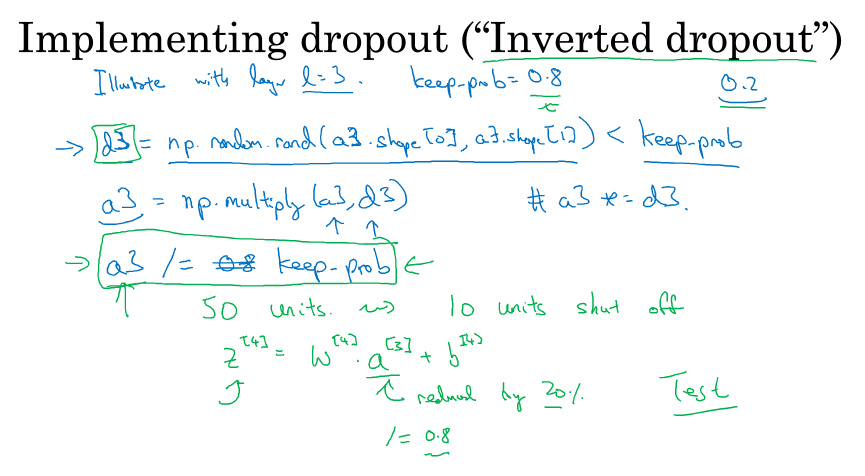 Implementing dropout (“Inverted dropout”)
Illustrate with layer l=3. keep-prob = 0.8 0.2
→ d3 = np.random.rand(a3.shape[0], a3.shape[1]) < keep-prob
a3 = np.multiply(a3, d3) # a3 *= d3.
→ a3 /= 0.8 keep-prob ←
50 units. ⇝ 10 units shut off
z^[4] = W^[4] . a^[3] + b^[4]
reduced by 20% Test
/= 0.8